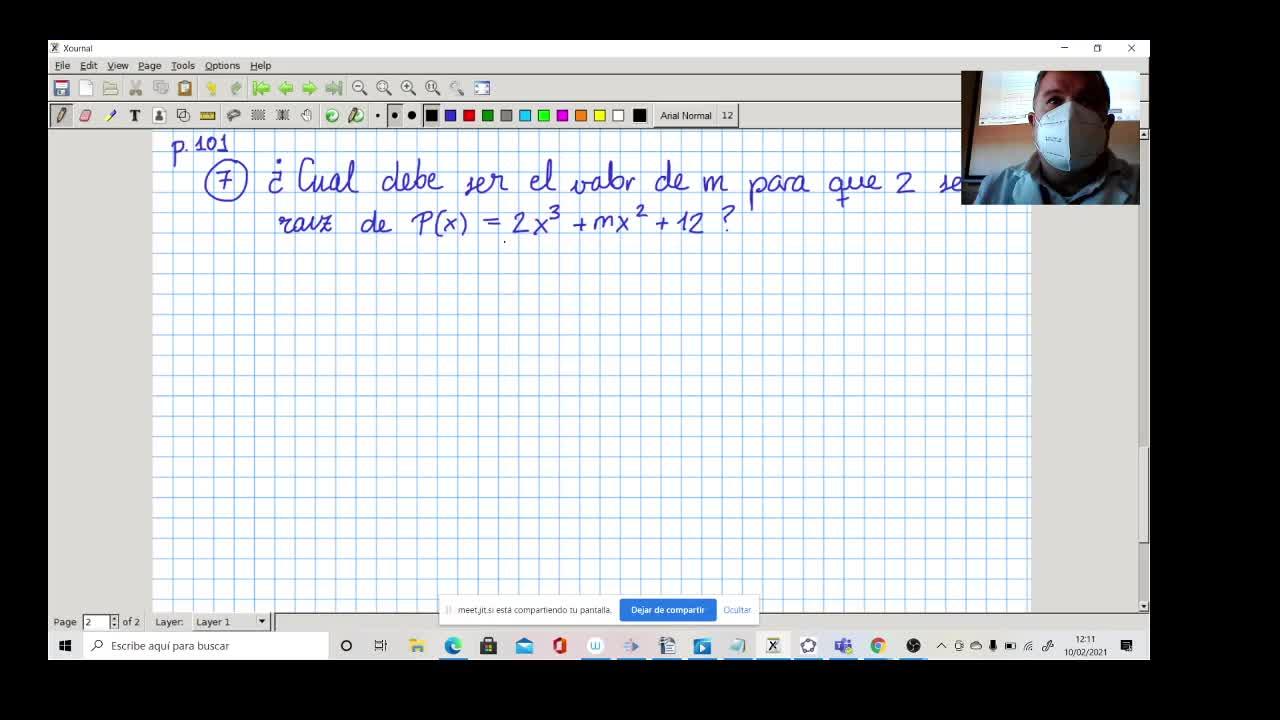 Xournal
File Edit View Page Tools Options Help
Arial Normal 12
p. 101
7 ¿Cual debe ser el valor de m para que 2 se
raiz de P(x) = 2x³ + mx² + 12 ?
meet.jit.si está compartiendo tu pantalla. Dejar de compartir Ocultar
Page 2 of 2 Layer: Layer 1
Escribe aquí para buscar
12:11
10/02/2021